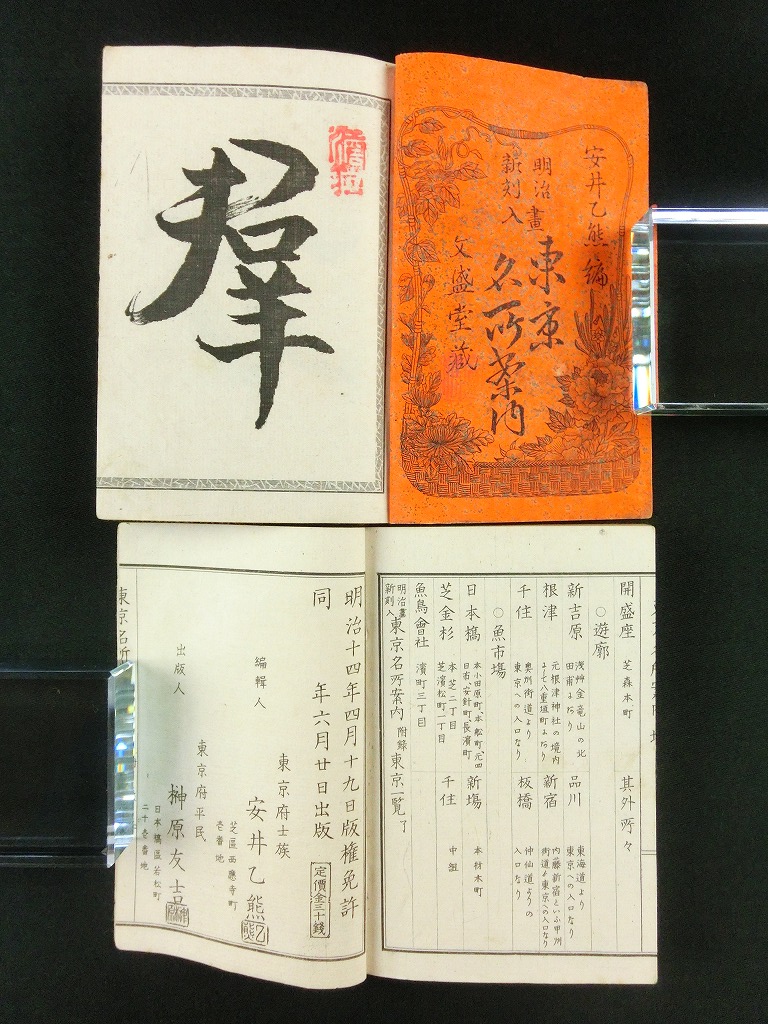 安井乙熊編
明治畫
新刻入
東京
名所案内
文盛堂藏
羣
開盛座 芝森本町 其外所々
○遊廓
新吉原 浅艸金竜山の北
田甫にあり
品川 東海道より
東京への入口なり
根津 元根津神社の境内
七八重垣町にあり
新宿 内藤新宿といふ甲州
街道より東京への入口なり
千住 奥州街道より
東京への入口なり
板橋 仲仙道よりの
入口なり
○魚市塲
日本橋 本小田原町、本舩町、元四
日市、安針町、長濱町
新塲 本材木町
芝金杉 本芝二丁目
芝濱松町一丁目
千住 中組
魚鳥會社 濱町三丁目
明治畫
新刻入 東京名所案内 附錄 東京一覧 了
明治十四年四月十九日版權免許
同 年六月廿日出版
定價金三十錢
編輯人
東京府士族
安井乙熊
芝區西應寺町
壱番地
出版人
東京府平民
榊原友吉
日本橋區若松町
二十壱番地
東京名所